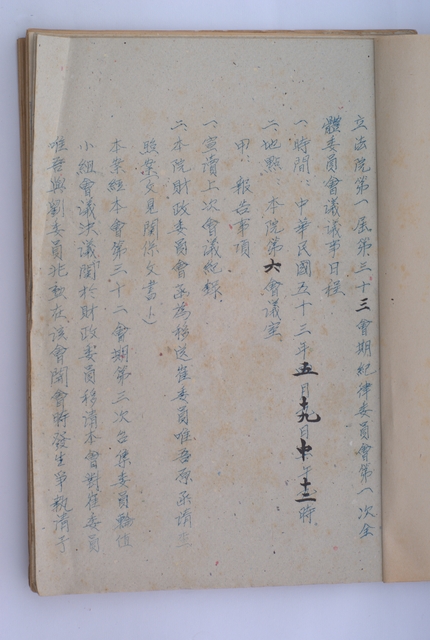 立法院第一屆第三十三會期紀律委員會第一次全
體委員會議議事日程
一、時間：中華民國五十三年五月十九日中午十二時
二、地點：本院第六會議室
甲、報告事項
一、宣讀上次會議紀錄
二、本院財政委員會函為移送崔委員唯吾原函請
本案經本會第三十二會期第三次召集委員
小組會議決議關於財政委員移請本會對崔委員
唯吾與劉委員 在該會開會時發生爭執請予